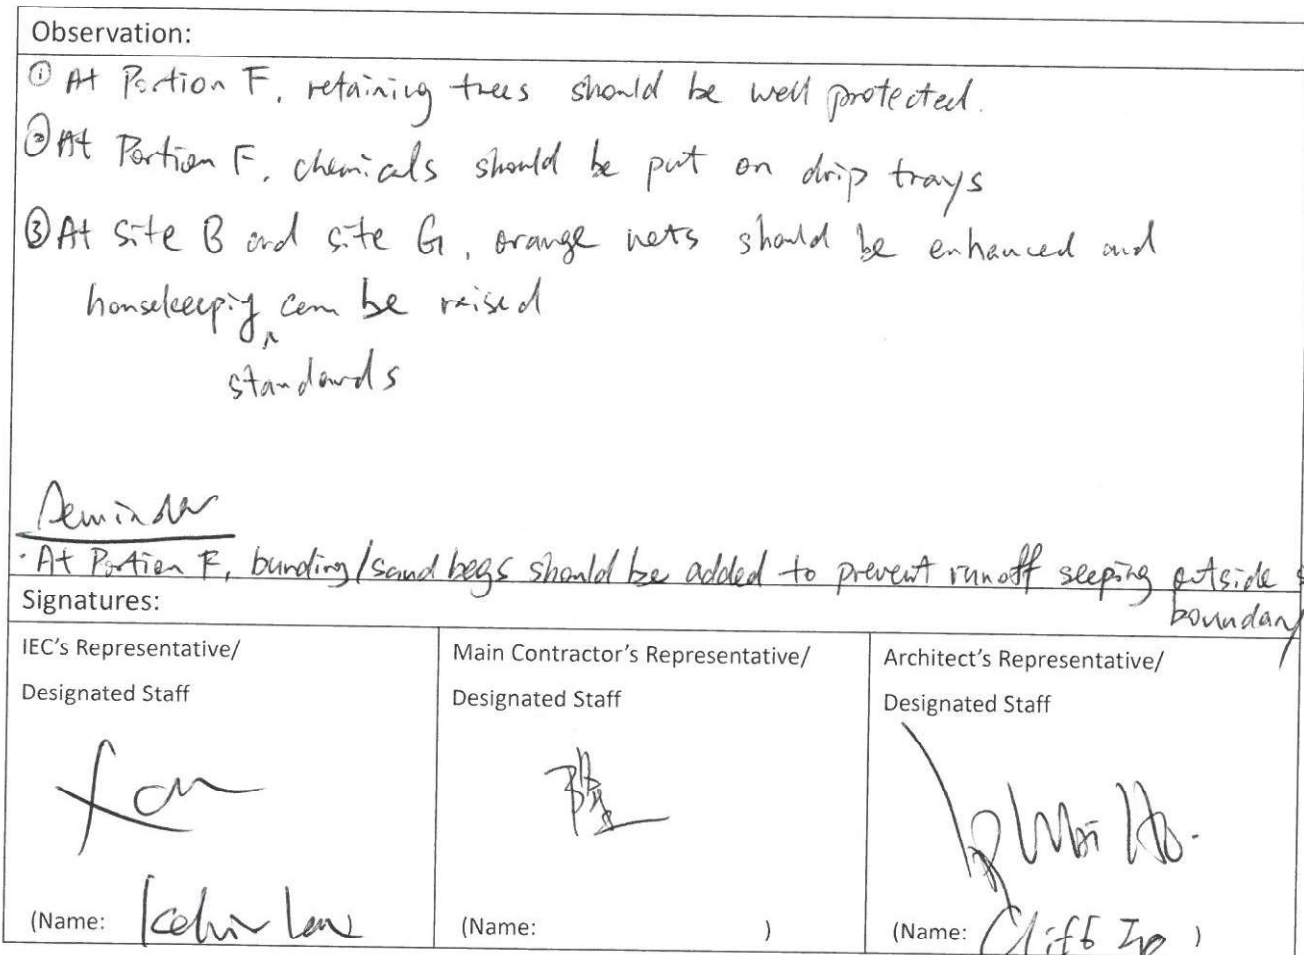 Observation:
① At Portion F, retaining trees should be well protected.
② At Portion F, chemicals should be put on drip trays
③ At site B and site G, orange nets should be enhanced and
housekeeping ^ can be raised
standards
Reminder
· At Portion F, bunding/sand bags should be added to prevent runoff seeping outside
boundary
Signatures:
IEC's Representative/
Designated Staff
Main Contractor's Representative/
Designated Staff
Architect's Representative/
Designated Staff
(Name: Kelvin
(Name: )
(Name: Cliff Ip )